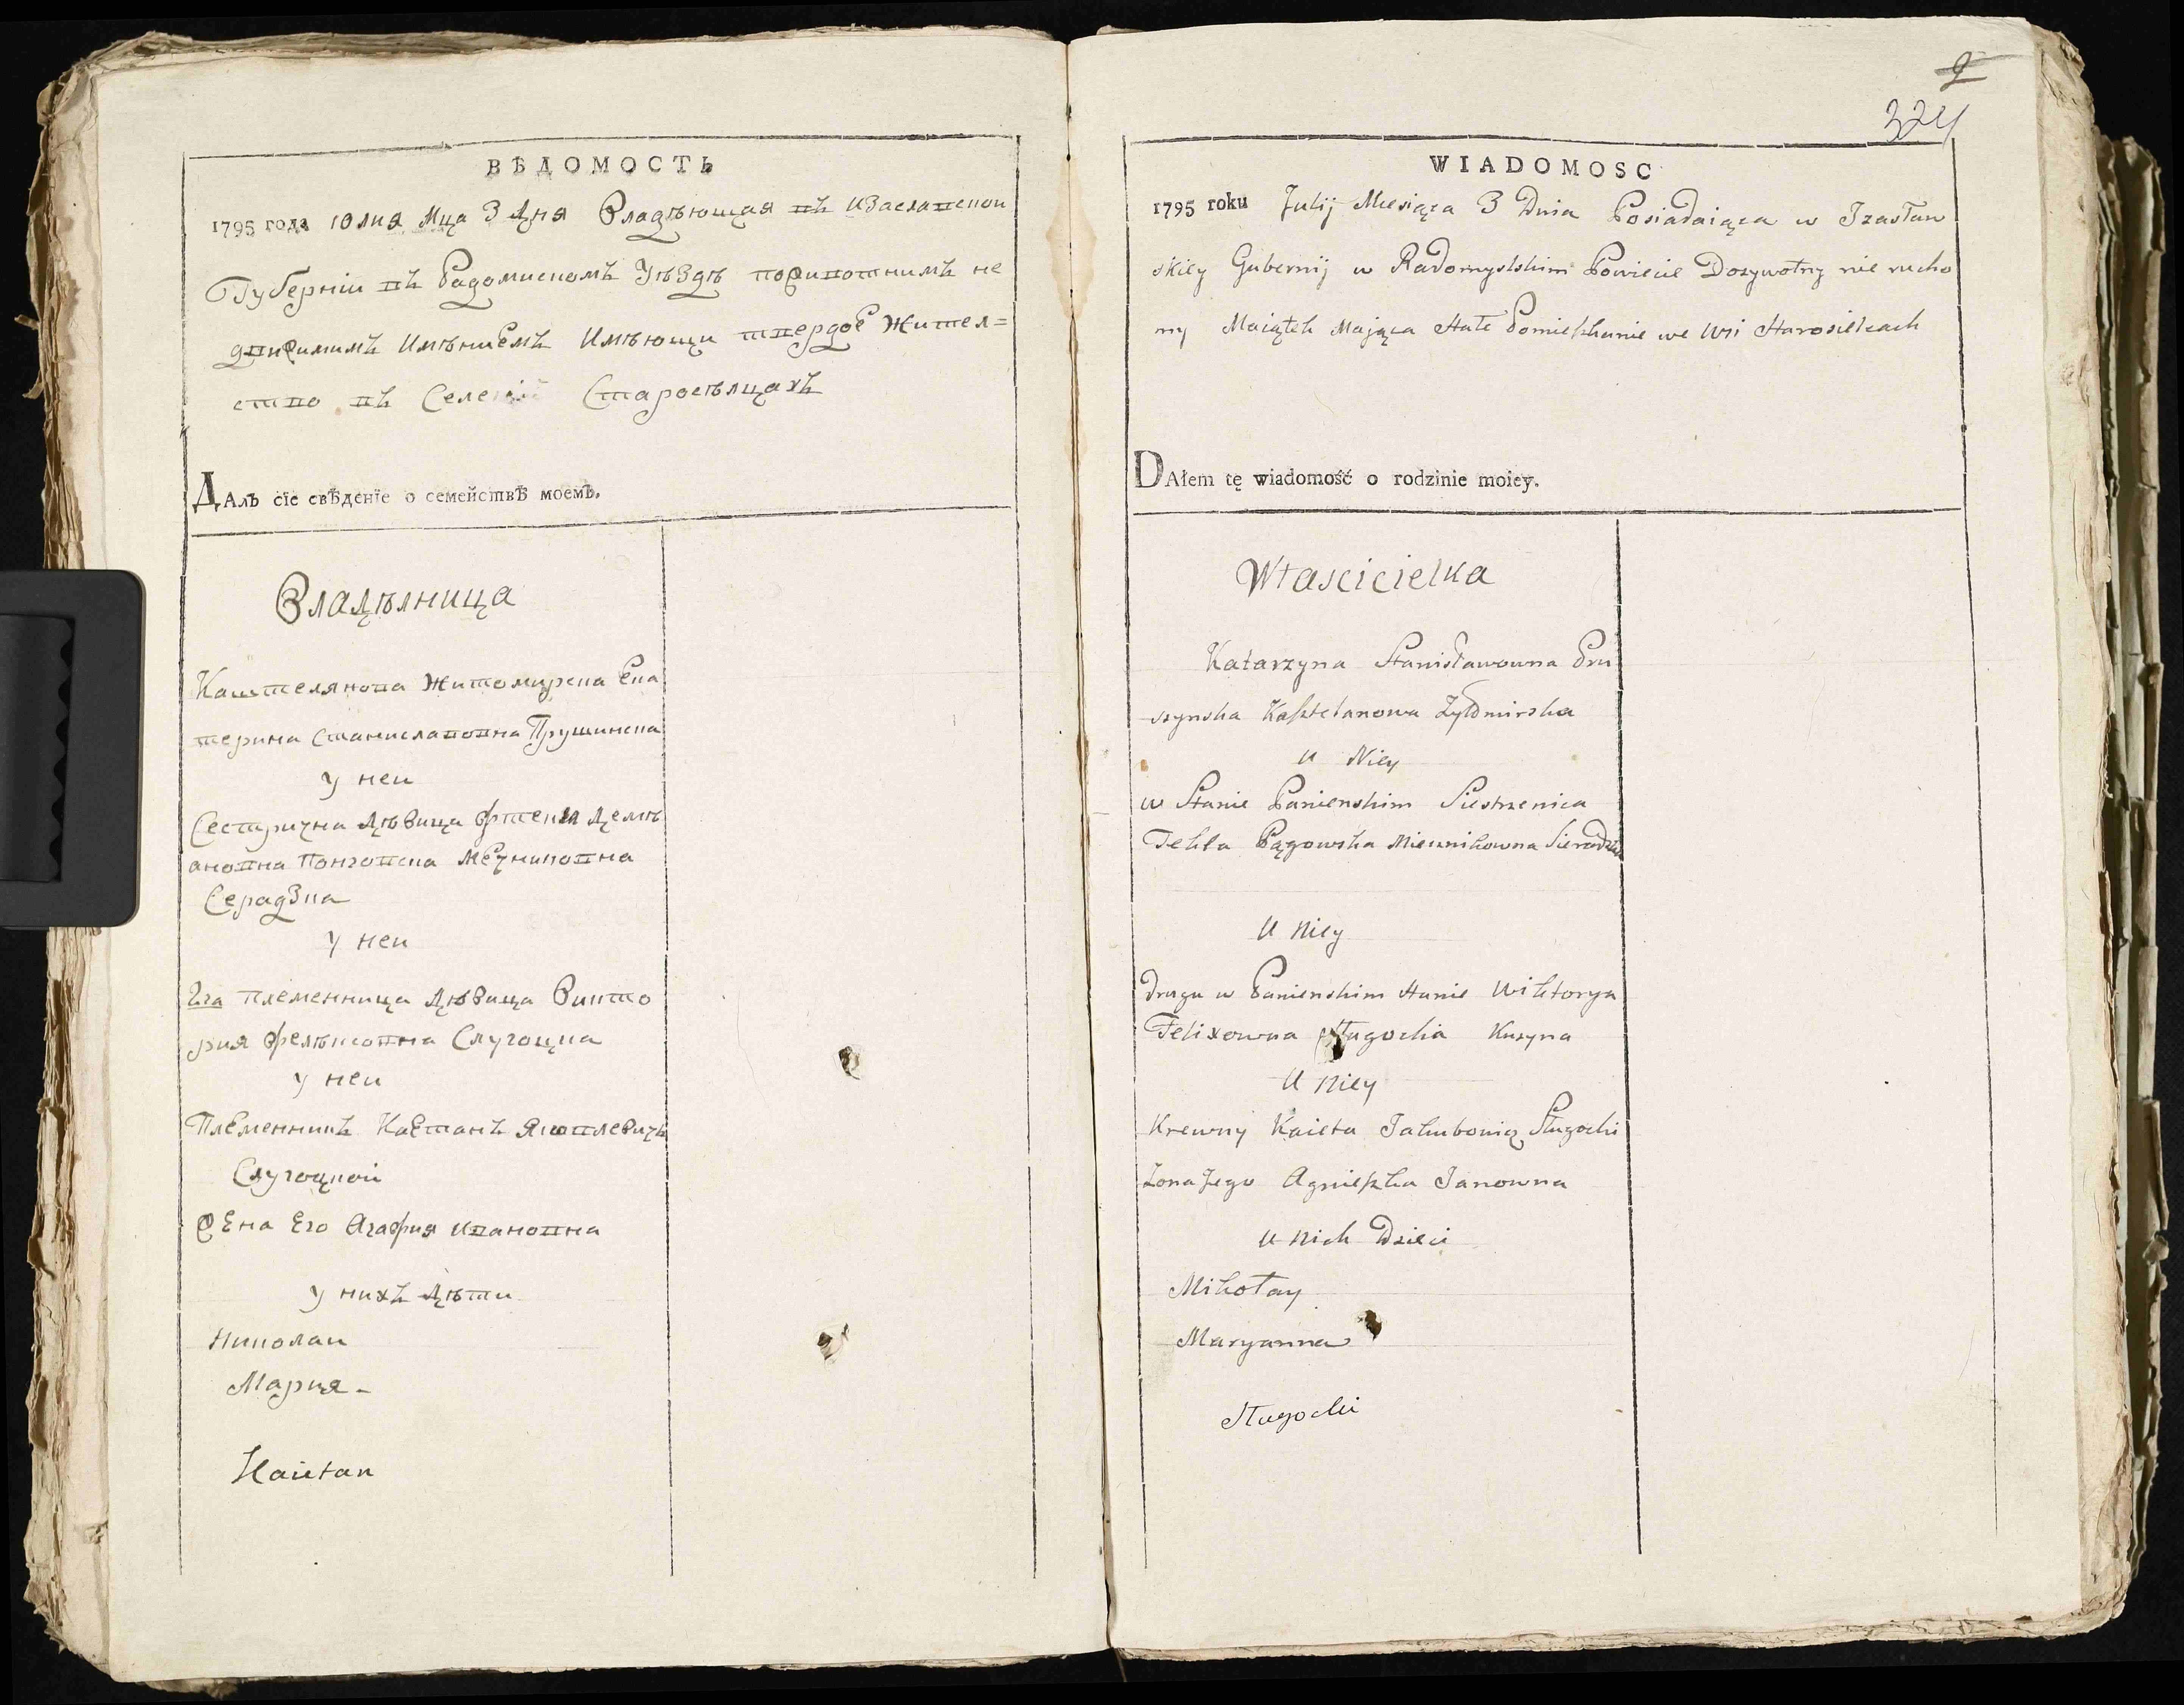 ВѢДОМОСТЬ
1795 года Юлия Мца 3 Дня Владѣющая въ Изаславской
Губерніи въ Радомискомъ Уѣздѣ поживотнимъ не
движимимъ Имѣниемъ Имѣющи твердое Жител=
ство въ Старосѣлцахъ
ДАлъ сїе свѣденїе о семействѣ моемъ.
Владѣлница
Каштелянова Житомирска Ека
терина Станиславовна Прушинска
у неи
Сестрична Дѣвица Фтекля Демѣ
ановна Понговска Мечниковна
Серадзка
у неи
2га племенница Дѣвица Викто
рия Фелѣковна Слугоцка
у неи
Племенникъ Каетанъ Яковлевичъ
Слугоцкой
Жена Его Агафия Ивановна
у нихъ Дѣти
Николаи
Мария -
Kaietan
2
324
WIADOMOSC
1795 roku Julij Miesiąca 3 Dnia Posiadaiąca w Jzasław
skiey Gubernij w Radomyslskim Powiecie Dozywotny nie rucho
my Maiątek Mająca Stałe Pomieszkanie we Wsi Starosielcach
DAłem tę wiadomość o rodzinie moiey.
Własicicielka
Katarzyna Stanisławowna Pru
szynska Kasztelanowa Zytomirska
u Niey
w Stanie Panienskim Siestrzenica
Tekla Pągowska Miecznikowna Sieradzka
U Niey
druga w Panienskim stanie Wiktorya
Felixowna Sługocka Kuzyna
U Niey
Krewny Kaieta Jakubowicz Sługocki
Zona Jego Agnieszka Janowna
U Nich Dzieci
Mikołay
Maryanna
Sługocki